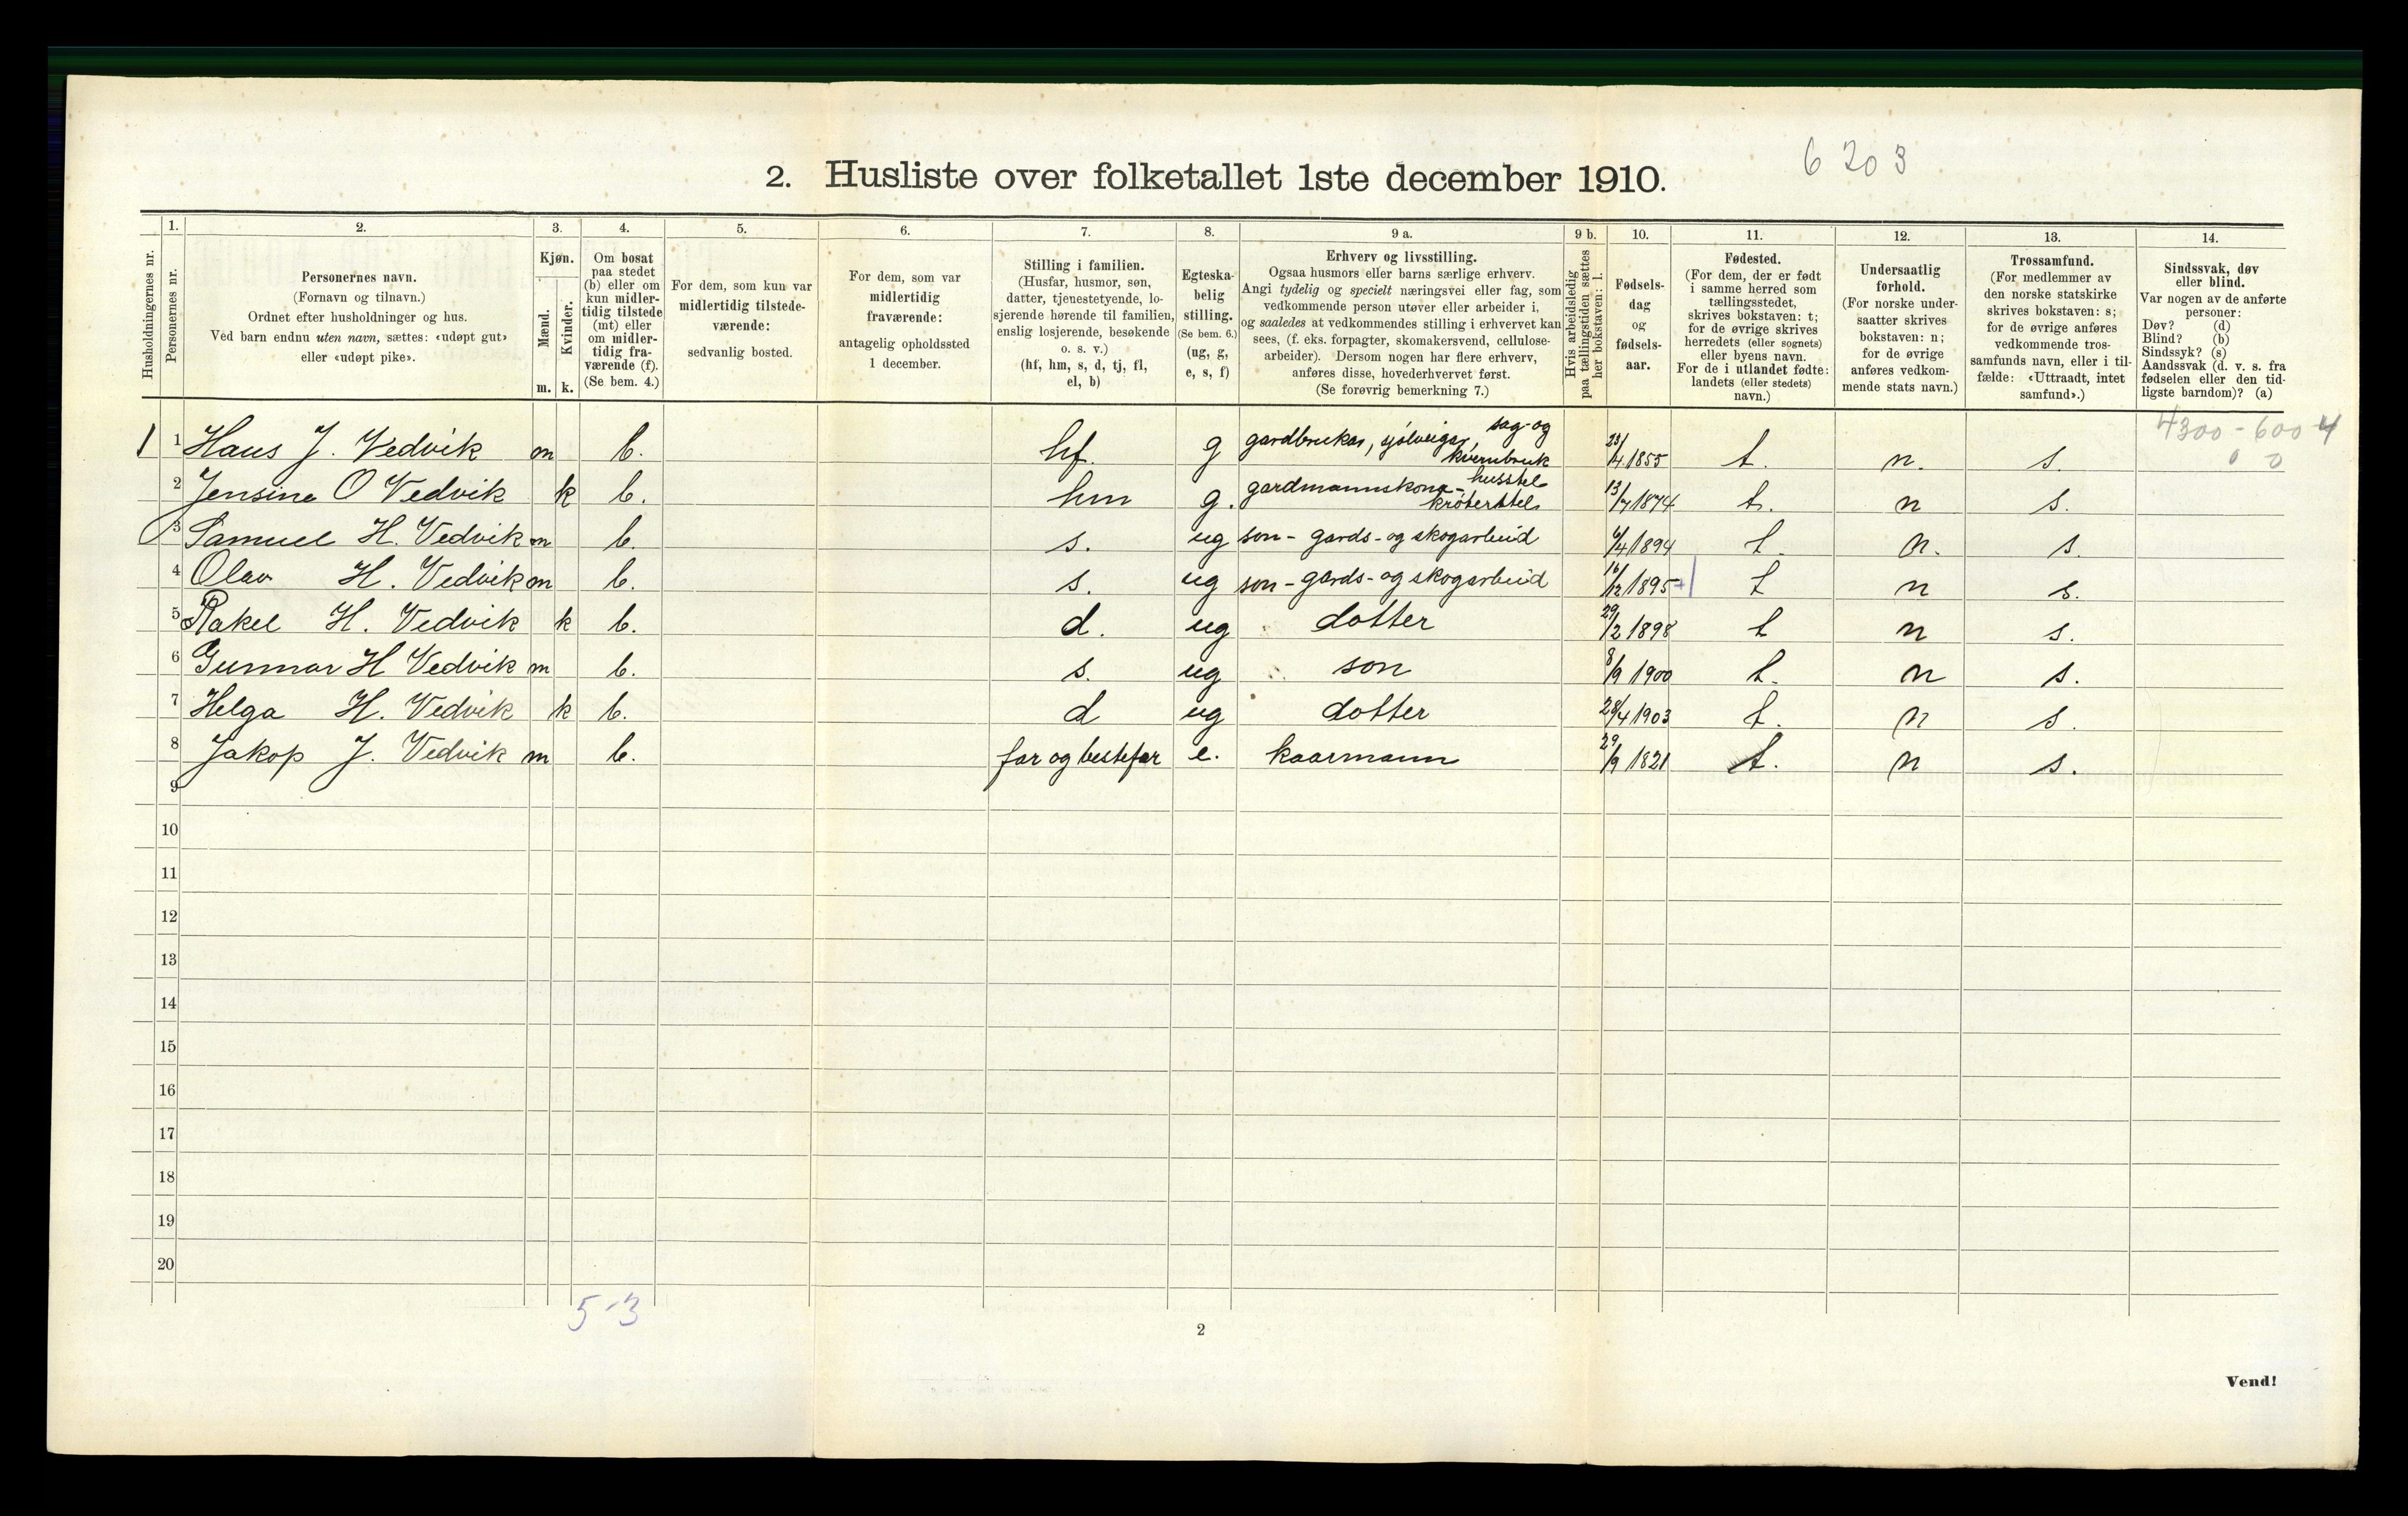 2. Husliste over folketallet 1ste december 1910.
6 203
Husholdningernes nr.
1.
Personernes nr.
2.
Personernes navn.
(Fornavn og tilnavn.)
Ordnet efter husholdninger og hus.
Ved barn endnu uten navn, sættes: «udøpt gut»
eller «udøpt pike».
3.
Kjøn.
Mænd.
Kvinder.
m. k.
4.
Om bosat
paa stedet
(b) eller om
kun midler-
tidig tilstede
(mt) eller
om midler-
tidig fra-
værende (f).
(Se bem. 4.)
5.
For dem, som kun var
midlertidig tilstede-
værende:
sedvanlig bosted.
6.
For dem, som var
midlertidig
fraværende:
antagelig opholdssted
1 december.
7.
Stilling i familien.
(Husfar, husmor, søn,
datter, tjenestetyende, lo-
sjerende hørende til familien,
enslig losjerende, besøkende
o. s. v.)
(hf, hm, s, d, tj, fl,
el, b)
8.
Egteska-
belig
stilling.
(Se bem. 6.)
(ug, g,
e, s, f)
9 a.
Erhverv og livsstilling.
Ogsaa husmors eller barns særlige erhverv.
Angi tydelig og specielt næringsvei eller fag, som
vedkommende person utøver eller arbeider i,
og saaledes at vedkommendes stilling i erhvervet kan
sees, (f. eks. forpagter, skomakersvend, cellulose-
arbeider). Dersom nogen har flere erhverv,
anføres disse, hovederhvervet først.
(Se forøvrig bemerkning 7.)
9 b.
Hvis arbeidsledig
paa tællingstiden sættes
her bokstaven: l.
10.
Fødsels-
dag
og
fødsels-
aar.
11.
Fødested.
(For dem, der er født
i samme herred som
tællingsstedet,
skrives bokstaven: t;
for de øvrige skrives
herredets (eller sognets)
eller byens navn.
For de i utlandet fødte:
landets (eller stedets)
navn.)
12.
Undersaatlig
forhold.
(For norske under-
saatter skrives
bokstaven: n;
for de øvrige
anføres vedkom-
mende stats navn.)
13.
Trossamfund.
(For medlemmer av
den norske statskirke
skrives bokstaven: s;
for de øvrige anføres
vedkommende tros-
samfunds navn, eller i til-
fælde: «Uttraadt, intet
samfund».)
14.
Sindssvak, døv
eller blind.
Var nogen av de anførte
personer:
Døv? (d)
Blind? (b)
Sindssyk? (s)
Aandssvak (d. v. s. fra
fødselen eller den tid-
ligste barndom)? (a)
4300 - 600 4
0 0
1 1 Hans J. Vedvik m b. hf. g gardbrukar, sjølveigar, sag- og kvernbruk 23/4 1855 t. n. s.
2 Jensine O Vedvik k b. hm g. gardmannskona - husstel krøterstel 13/7 1874 t. n s.
3 Samuel H. Vedvik m b. s. ug son - gards- og skogarbeid 6/4 1894 t. n. s.
4 Olav H. Vedvik m b. s. ug son - gards- og skogarbeid 16/12 1895 t n s.
5 Rakel H. Vedvik k b. d. ug dotter 29/2 1898 t n s.
6 Gunnar H Vedvik m b. s. ug son 8/9 1900 t. n s.
7 Helga H. Vedvik k b. d ug dotter 28/4 1903 t. n s.
8 Jakop J. Vedvik m b. far og bestefar e. kaarmann 29/9 1821 t. n s.
9
10
11
12
13
14
15
16
17
18
19
20
5-3
2
Vend!